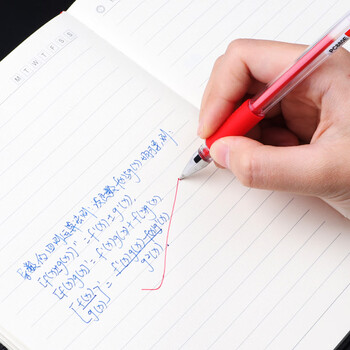 M T W T F S S
导数的四则运算法则 及函数f(x)g(x)均可导,则
[f(x)±g(x)]' = f'(x)±g'(x),
[f(x)g(x)]' = f'(x)g(x)+f(x)g'(x)
[f(x)/g(x)]' = f'(x)g(x)-f(x)g'(x)/g²(x)